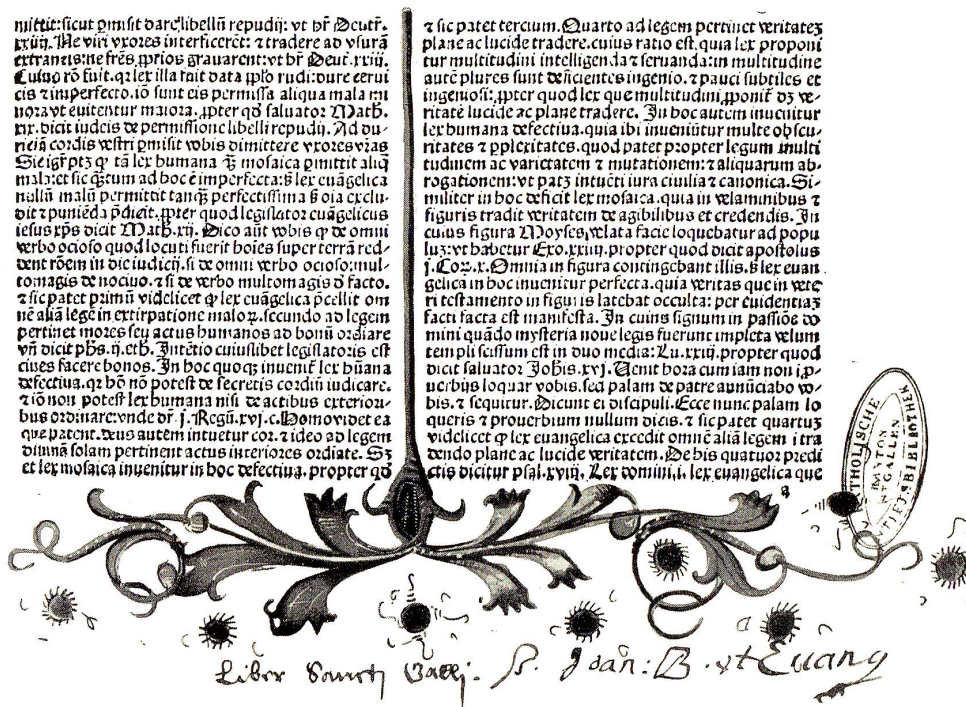 mittit: sicut ꝑmisit dare libellū repudij: vt hr̄ Deutr̄.
xxiiij. Ne viri vxores interficerēt: ⁊ tradere ad vsurā
extraneis: ne frēs ꝓprios grauarent: vt hr̄ Deut. xxiij.
Cuius rō fuit. qꝛ lex illa fuit data ꝓplo rudi: dure cerui
cis ⁊ imperfecto. iō sunt eis permissa aliqua mala mi
nora vt euitentur maiora. ꝓpter qd̄ saluator Math.
xix. dicit iudeis de permissione libelli repudij. Ad du-
riciā cordis vestri ꝑmisit vobis dimittere vxores vr̄as
Sic igr̄ ptꝫ ꝙ tā lex humana ꝙ̄ mosaica ꝑmittit aliq̄
mala: et sic ꝙ̄tum ad hoc ē imperfecta: ß lex euāgelica
nullū malū permittit tanꝙ̄ perfectissima ß oīa exclu-
dit ⁊ puniēda p̄dicit. ꝓpter quod legislator euāgelicus
iesus xp̄s dicit Math. xij. Dico aūt vobis ꝙ de omni
verbo ocioso quod locuti fuerit hoīes super terrā red-
dent rōem in die iudicij. si de omni verbo ocioso: mul-
tomagis de nociuo. ⁊ si de verbo multomagis d̄ facto.
⁊ sic patet primū videlicet ꝙ lex euāgelica p̄cellit om
nē aliā legē in extirpatione maloꝝ. secundo ad legem
pertinet mores seu actus humanos ad bonū ordiare
vn̄ dicit ph̄s. ij. eth. Intētio cuiuslibet legislatoris est
ciues facere bonos. In hoc quoqꝫ inuenit̄ lex hūana
defectiua. qꝛ hō nō potest de secretis cordiū iudicare.
⁊ iō non potest lex humana nisi de actibus exteriori-
bus ordinare: vnde dr̄. j. Regū. xvj. c. Homo videt ea
que patent. deus autem intuetur cor. ⁊ ideo ad legem
diuinā solam pertinent actus interiores ordiate. Sꝫ
et lex mosaica inuenitur in hoc defectiua. propter qd̄
⁊ sic patet tercium. Quarto ad legem pertinet veritateꝫ
plane ac lucide tradere. cuius ratio est. quia lex proponi
tur multitudini intelligenda ⁊ seruanda: in multitudine
autē plures sunt deficientes ingenio. ⁊ pauci subtiles et
ingeniosi: ꝓpter quod lex que multitudini ꝓponit̄ dꝫ ve-
ritatē lucide ac plane tradere. In hoc autem inuenitur
lex humana defectiua. quia ibi inueniūtur multe obscu-
ritates ⁊ ꝑplexitates. quod patet propter legum multi
tudinem ac varietatem ⁊ mutationem: ⁊ aliquarum ab-
rogationem: vt patꝫ intuēti iura ciuilia ⁊ canonica. Si-
militer in hoc deficit lex mosaica. quia in velaminibus ⁊
figuris tradit veritatem de agibilibus et credendis. In
cuius figura Moyses velata facie loquebatur ad popu
luꝫ: vt habetur Exo. xxiiij. propter quod dicit apostolus
j. Coꝝ. x. Omnia in figura contingebant illis. ß lex euan
gelica in hoc inuenitur perfecta. quia veritas que in vete
ri testamento in figuris latebat occulta: per euidentiaꝫ
facti facta est manifesta. In cuius signum in passiōe do
mini quādo mysteria noue legis fuerunt impleta velum
templi scissum est in duo media: Lu. xxiij. propter quod
dicit saluator Johis. xvj. Uenit hora cum iam non ī ꝓ-
uerbijs loquar vobis. sed palam de patre annūciabo vo-
bis. ⁊ sequitur. Dicunt ei discipuli. Ecce nunc palam lo
queris ⁊ prouerbium nullum dicis. ⁊ sic patet quartuꝫ
videlicet ꝙ lex euangelica excedit omnē aliā legem ī tra
dendo plane ac lucide veritatem. De his quatuor predi
ctis dicitur psal. xviij. Lex domini. i. lex euangelica que
a
STIFTSBIBLIOTHEK
Liber Sancti Galli. S. Joan̄: B. et Euang